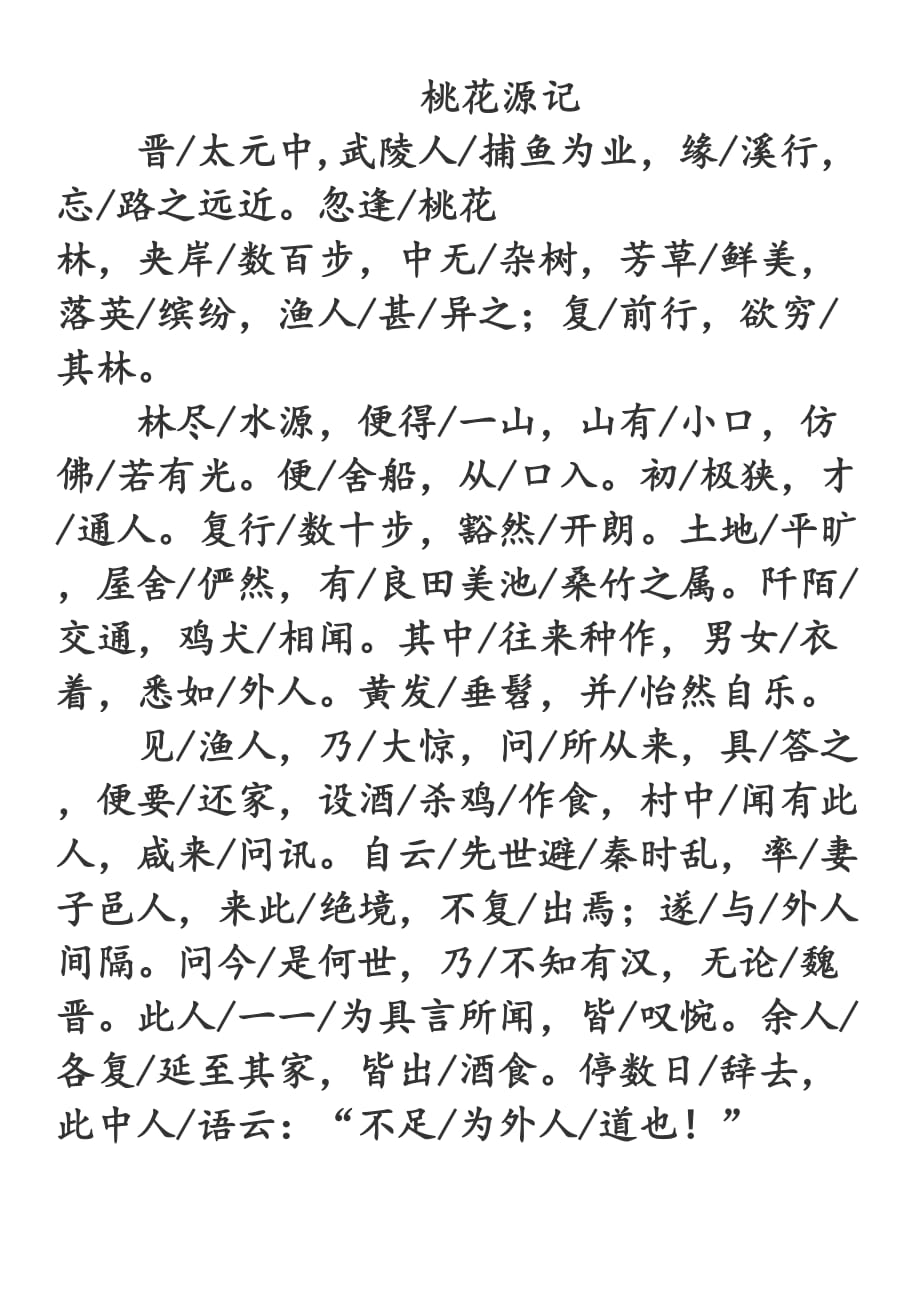 桃花源记
晋/太元中,武陵人/捕鱼为业，缘/溪行，
忘/路之远近。忽逢/桃花
林，夹岸/数百步，中无/杂树，芳草/鲜美，
落英/缤纷，渔人/甚/异之；复/前行，欲穷/
其林。
林尽/水源，便得/一山，山有/小口，仿
佛/若有光。便/舍船，从/口入。初/极狭，才
/通人。复行/数十步，豁然/开朗。土地/平旷
，屋舍/俨然，有/良田美池/桑竹之属。阡陌/
交通，鸡犬/相闻。其中/往来种作，男女/衣
着，悉如/外人。黄发/垂髫，并/怡然自乐。
见/渔人，乃/大惊，问/所从来，具/答之
，便要/还家，设酒/杀鸡/作食，村中/闻有此
人，咸来/问讯。自云/先世避/秦时乱，率/妻
子邑人，来此/绝境，不复/出焉；遂/与/外人
间隔。问今/是何世，乃/不知有汉，无论/魏
晋。此人/一一/为具言所闻，皆/叹惋。余人/
各复/延至其家，皆出/酒食。停数日/辞去，
此中人/语云：“不足/为外人/道也！”